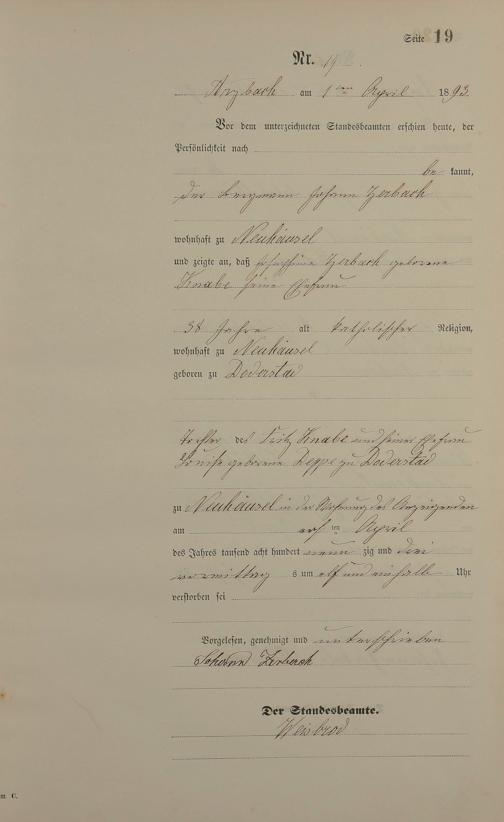 Seite 19
Nr. 19.
Arzbach am 1ten April 1893.
Vor dem unterzeichneten Standesbeamten erschien heute, der
Persönlichkeit nach
be kannt,
der Bergmann Johann Zerbach
wohnhaft zu Neuhäusel
und zeigte an, daß Josephine Zerbach geborene
Knabe seine Ehefrau
38 Jahre alt katholischer Religion,
wohnhaft zu Neuhäusel
geboren zu Doderstad
Tochter des Fritz Knabe und seiner Ehefrau
Louise geborene Deppe zu Doderstad
zu Neuhäusel in der Wohnung des Anzeigenden
am ersten April
des Jahres tausend acht hundert neun zig und drei
vormittag s um elf und einhalb Uhr
verstorben sei
Vorgelesen, genehmigt und unterschrieben
Johann Zerbach
Der Standesbeamte.
Weisbrod
m C.